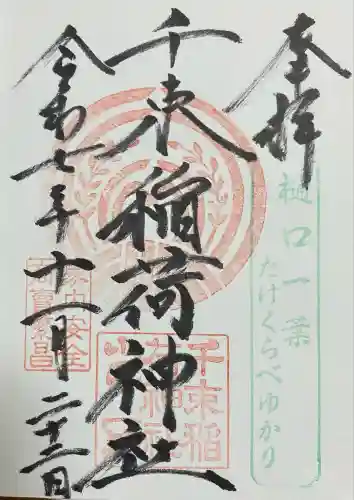 奉拝
樋口一葉
たけくらべゆかり
千束稲荷神社
千束稲
家内安全
商売繁昌
令和七年十一月二十二日